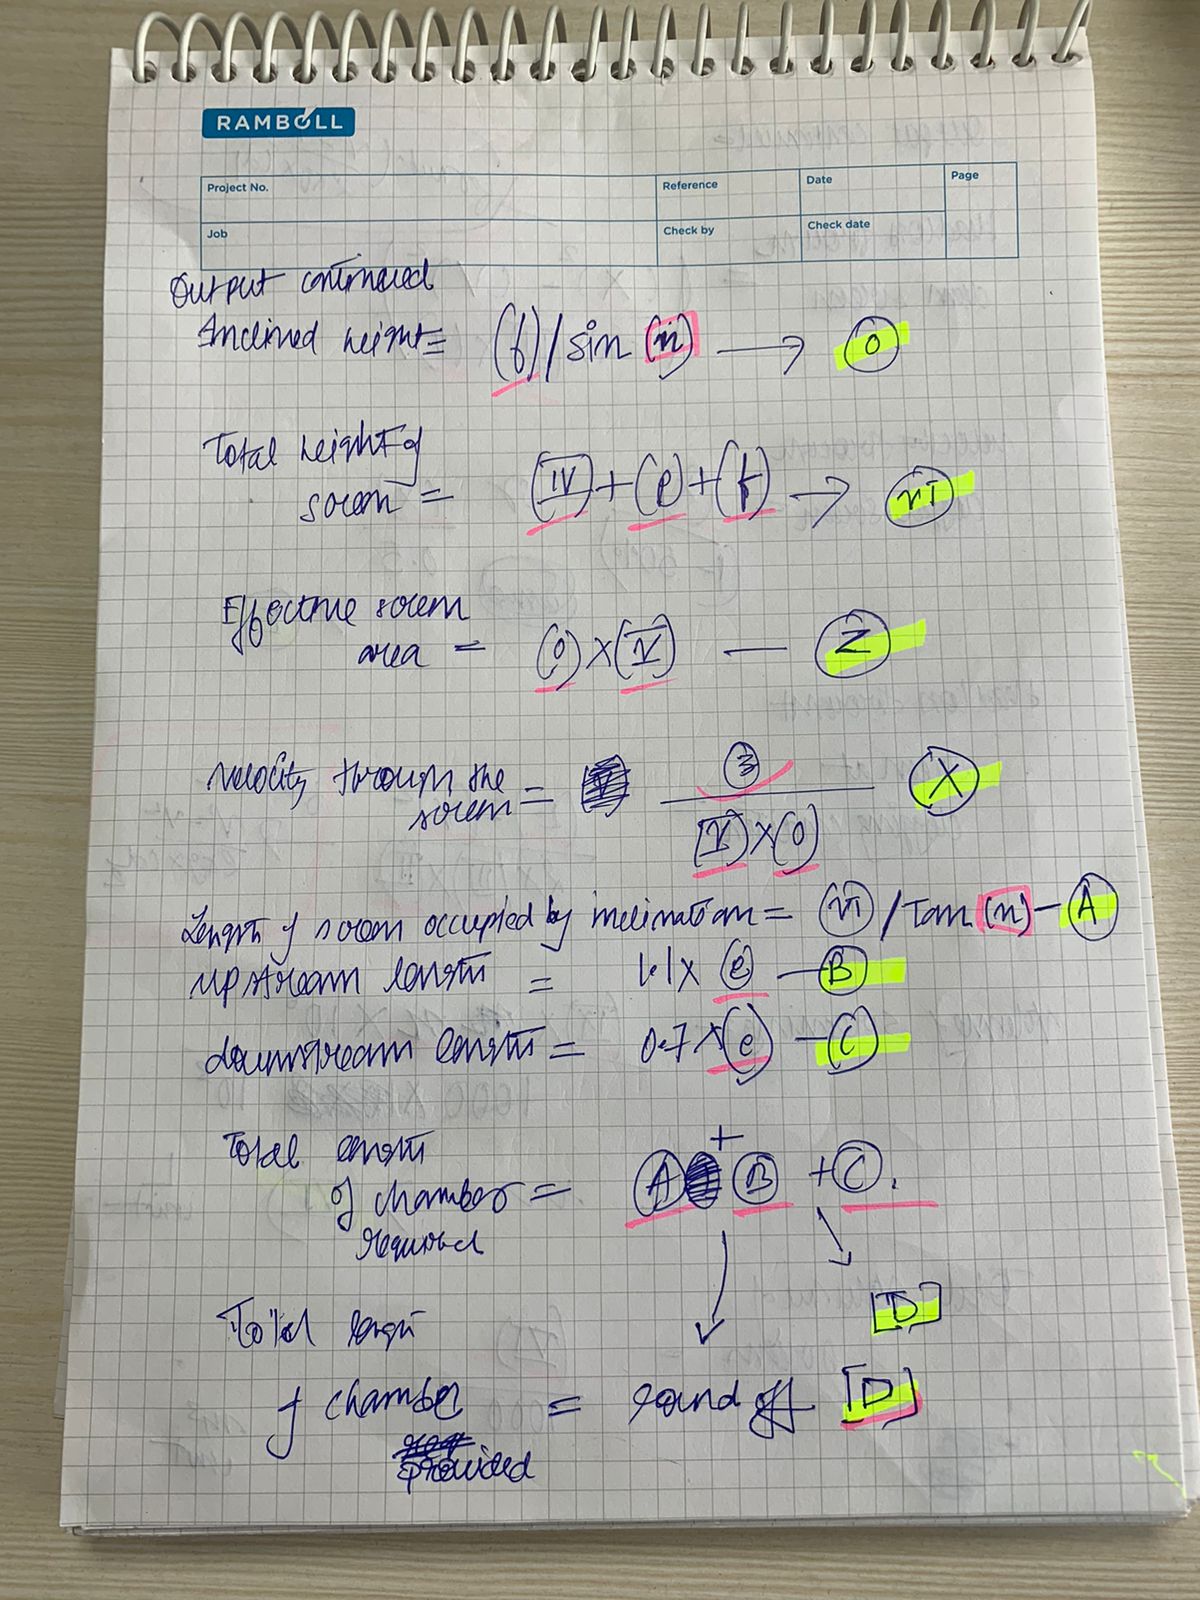 RAMBOLL
Project No.
Reference
Date
Page
Job
Check by
Check date
Output continued
Inclined height = (f) / sin (n) → O
Total height of
screen = (IV) + (P) + (f) → VI
Effective screen
area = (O) × (V) — Z
Velocity through the
screen = 3 / (V) × (O) X
Length of screen occupied by inclination = (VI) / Tan (n) — A
upstream length = 1.1 × (e) — B
downstream length = 0.7 × (e) — C
Total length
of chamber = A + B + C.
required
[D]
Total length
of chamber = round off [D]
provided